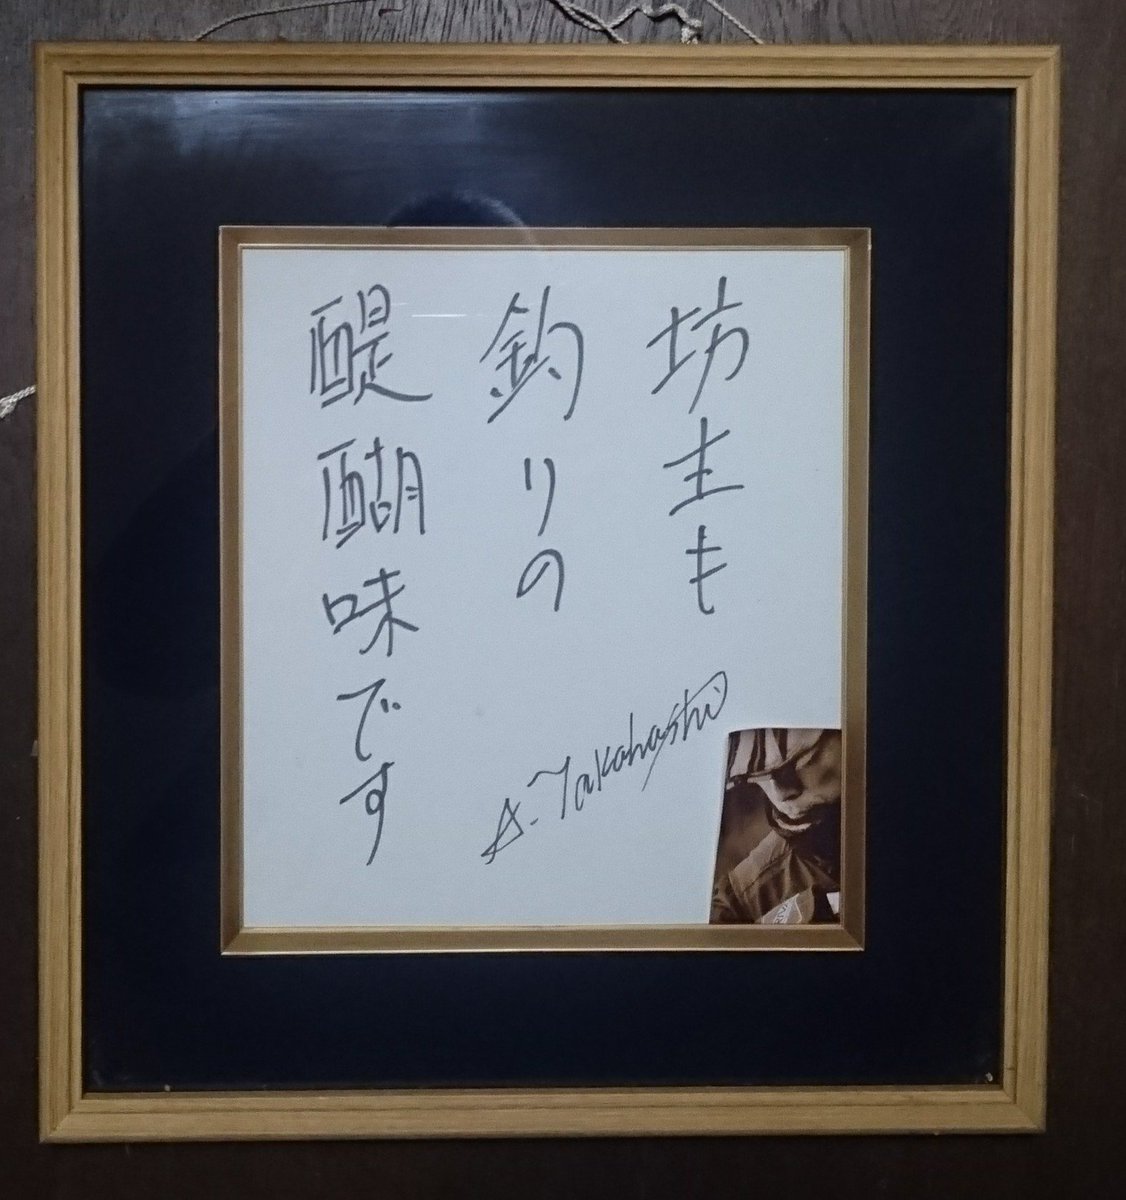 坊主も
釣りの
醍醐味です
A. Takahashi